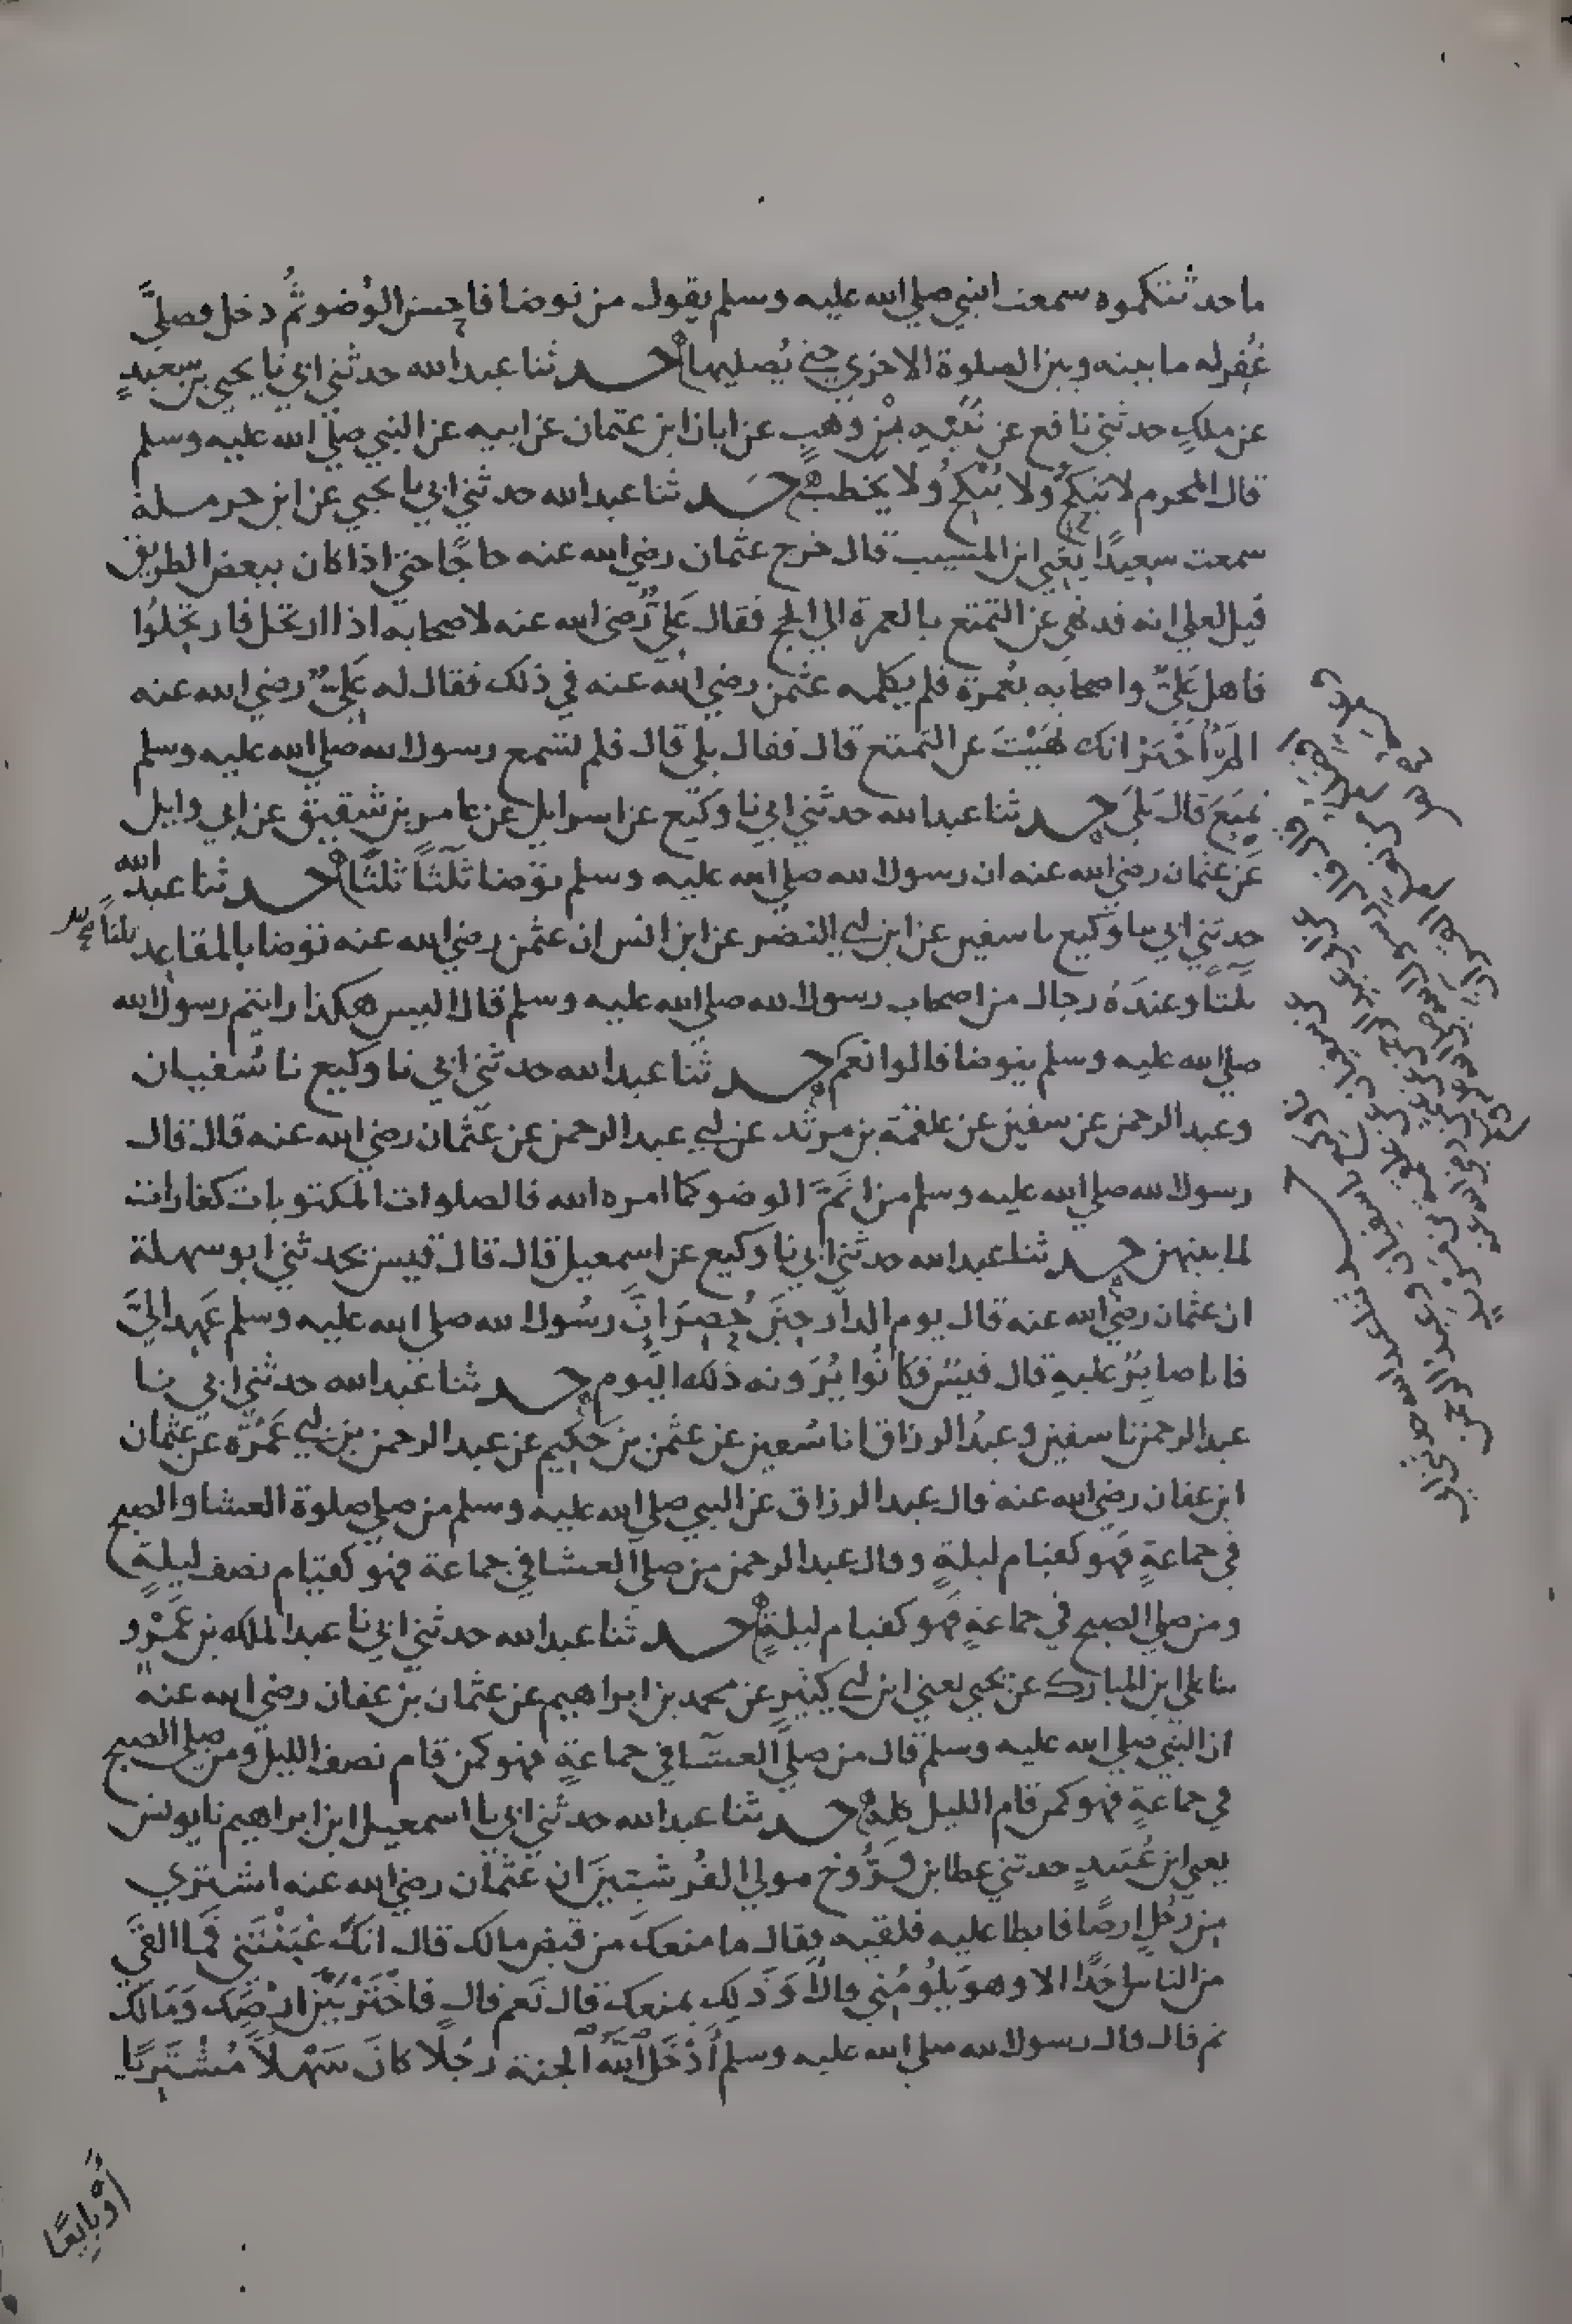 ما حدثتكموه سمعت النبي صلى الله عليه وسلم يقول من توضا فاحسن الوُضو ثُم دخل فصلىَّ
غُفِر له ما بينه وبين الصلوة الاخري حتى يُصليها حـــد ثنا عبد الله حدثني ابي نا يحيى بن سعيدٍ
عن ملكٍ حدثني نافع عن نُبَيْه بْنِ وَهبٍ عن ابان ابن عثمان عن ابيه عن النبي صلى الله عليه وسلم
قال المحرم لا يَنكِحُ ولا يُنكِحُ ولا يَخطب حـــد ثنا عبد الله حدثني ابي نا يحيى عن ابن حرملة
سمعت سعيدًا يعني ابن المسيب قال خرج عثمان رضي الله عنه حاجًّا حتى اذا كان ببعض الطريق
قيل لعلي انه قد نهى عن التمتع بالعمرة الي الحج فقال عَلِيٌّ رضي الله عنه لاصحابه اذا ارتحل فارتحِلُوا
فاهل عَلِيٌّ واصحابه بعُمرة فلم يكلمه عثمن رضي الله عنه في ذلك فقال له عَلِيٌّ رضي الله عنه
الَمْ أُخْبَرْ انك نَهَيْتَ عن التمتع قال فقال بلى قال فلم تسمع رسول الله صلى الله عليه وسلم
تمتعَ قال بَلَى حـــد ثنا عبد الله حدثني ابي نا وكيع عن اسرايل عن عامر بن شقيق عن ابي وايل
عَن عثمان رضي الله عنه ان رسول الله صلى الله عليه وسلم توضا ثَلثًا ثلثًا حـــد ثنا عبد الله
حدثني ابي نا وكيع نا سفين عن ابن ابي النضر عن ابن انس ان عثمن رضي الله عنه توضا بالمقاعد ثلثاً
ثلثاً وعندَهُ رجال من اصحاب رسول الله صلى الله عليه وسلم قال اليس هكذا رايتم رسول الله
صلى الله عليه وسلم يتوضا قالوا نعم حـــد ثنا عبد الله حدثني ابي نا وكيع نا سُفيان
وعبد الرحمن عن سفين عن علقمة بن مرثد عن ابي عبد الرحمن عن عثمان رضي الله عنه قال قال
رسول الله صلى الله عليه وسلم من اتمَّ الوضو كما امره الله فالصلوات المكتوبات كفارات
لما بينهن حـــد ثنا عبد الله حدثني ابي نا وكيع عن اسمعيل قال قال قيس فحدثني ابو سهلة
ان عثمان رضي الله عنه قال يوم الدار حينَ حُصِرَ انَّ رسُول الله صلى الله عليه وسلم عَهِد اليَّ
فانا صابِرٌ عليهِ قال قيسٌ فكانُوا يُرَونه ذلك اليوم حـــد ثنا عبد الله حدثني ابي نا
عبد الرحمن نا سفين وعبدُ الرزاق انا سُفين عن عثمن بن حَكِيم عن عبد الرحمن بن ابي عَمْرَة عن عثمان
ابن عفان رضي الله عنه قال عبد الرزاق عن النبي صلى الله عليه وسلم من صلى صلوة العشا والصبح
في جماعةٍ فهو كقيام ليلةٍ وقال عبد الرحمن من صلى العشا في جماعة فهو كقيام نصف ليلةٍ
ومن صلى الصبح في جماعةٍ فهو كقيام ليلةٍ حـــد ثنا عبد الله حدثني ابي نا عبد الملك بن عَمْرو
ثنا علي ابن المبارك عن يحيى يعني ابن ابي كثيرٍ عن محمد بن ابراهيم عن عثمان بن عفان رضي الله عنه
ان النبي صلى الله عليه وسلم قال من صلى العشا في جماعةٍ فهو كمن قام نصف الليل ومن صلى الصبح
في جماعةٍ فهو كمن قام الليل كله حـــد ثنا عبد الله حدثني ابي نا اسمعيل ابن ابراهيم نا يونس
يعني ابن عُبَيدٍ حدثني عطا بن فَرُّوخ مولى القُرشيينَ ان عثمان رضي الله عنه اشتري
مِن رَجُلٍ ارضًا فابطا عليه فلقيه فقال ما منعك من قبض مالك قال انكَ غبَنْتَني فما القَى
من الناس احَدًا الا وهو يَلُومُني قال أَوَذَلِك يمنعك قال نَعم قال فاخْتَرْ بَيْنَ ارْضِك وَمَالك
ثم قال قال رسول الله صلى الله عليه وسلم أَدْخَلَ اللَّهُ الجنة رجُلًا كانَ سَهْلاً مُشْتَرِيًا
أوْ بَايِعًا
حـــد ثنا عبد الله حدثني ابي
نا وكيع نا سفيان وعبد الرحمن
عن سفيان عن علقمة بن مرثدٍ
عن ابي عبد الرحمن عن عثمن رضي الله عنه
قال قال رسول الله صلى الله عليه
افضلكم من تعلم القران
وعلمه